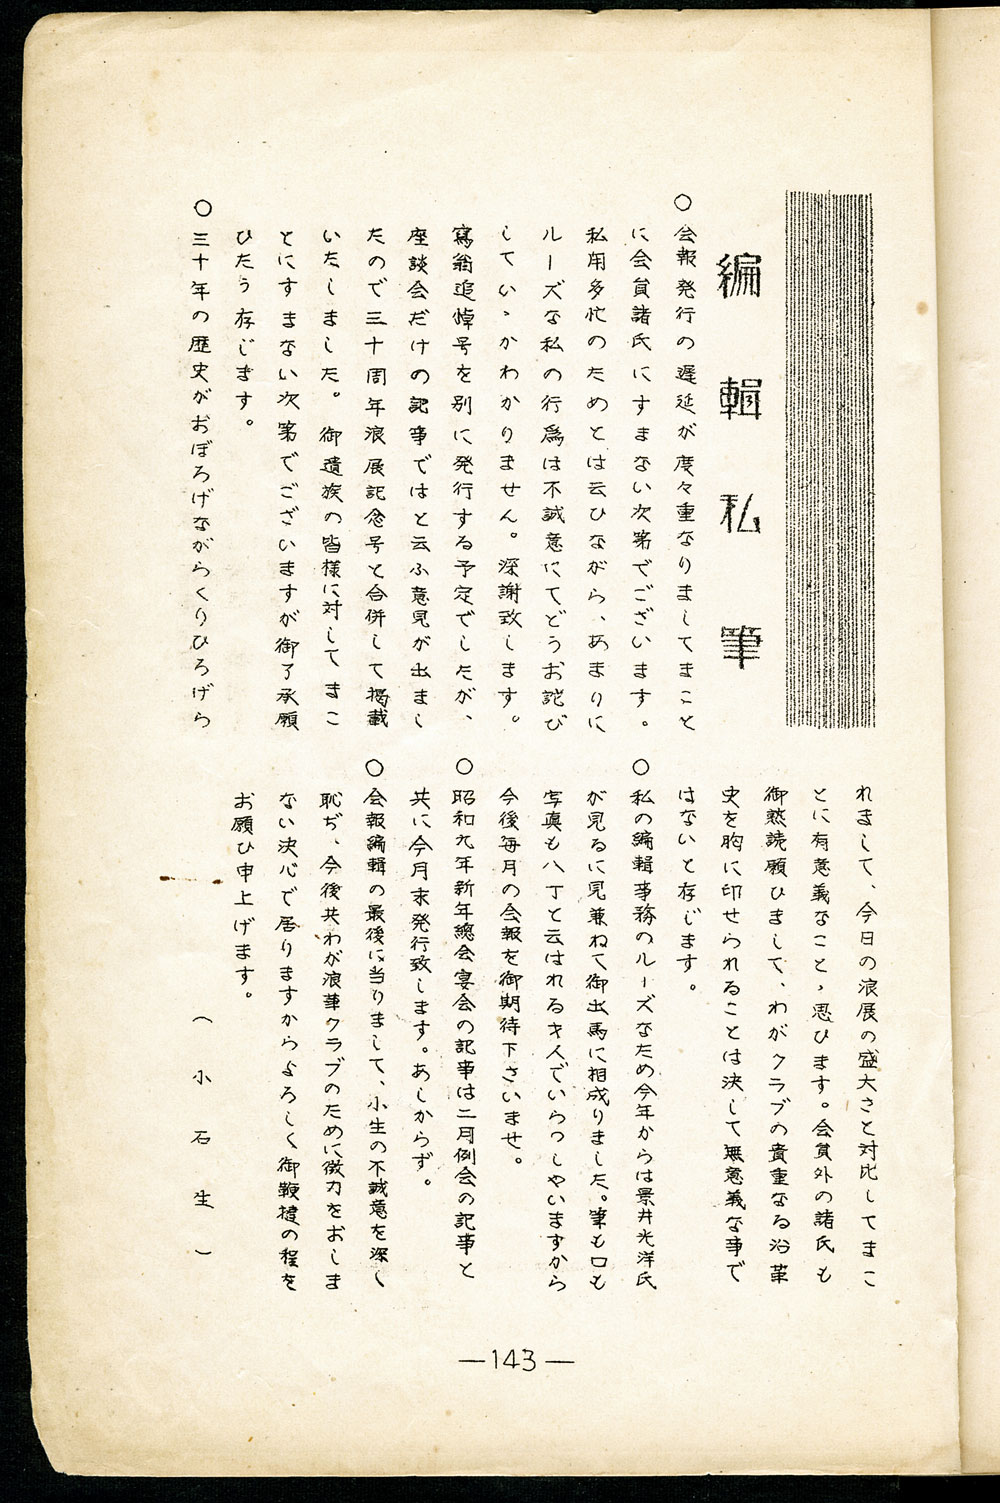 編輯私筆
○会報発行の遅延が度々重なりましてまこと
に会員諸氏にすまない次第でございます。
私用多忙のためとは云ひながら、あまりに
ルーズな私の行為は不誠意にてどうお詑び
していゝかわかりません。深謝致します。
寫翁追悼号を別に発行する予定でしたが、
座談会だけの記事ではと云ふ意見が出まし
たので三十周年浪展記念号と合併して掲載
いたしました。御遺族の皆様に対してまこ
とにすまない次第でございますが御了承願
ひたう存じます。
○三十年の歴史がおぼろげながらくりひろげら
れまして、今日の浪展の盛大さと対比してまこ
とに有意義なことゝ思ひます。会員外の諸氏も
御熟読願ひまして、わがクラブの貴重なる沿革
史を胸に印せられることは決して無意義な事で
はないと存じます。
○私の編輯事務のルーズなため今年からは景井光洋氏
が見るに見兼ねて御出馬に相成りました。筆も口も
写真も八丁と云はれる才人でいらつしやいますから
今後毎月の会報を御期待下さいませ。
○昭和九年新年總会宴会の記事は二月例会の記事と
共に今月末発行致します。あしからず。
○会報編輯の最後に当りまして、小生の不誠意を深く
恥ぢ、今後共わが浪華クラブのために微力をおしま
ない決心で居りますからよろしく御鞭撻の程を
お願ひ申上げます。
(小石生)
—143—